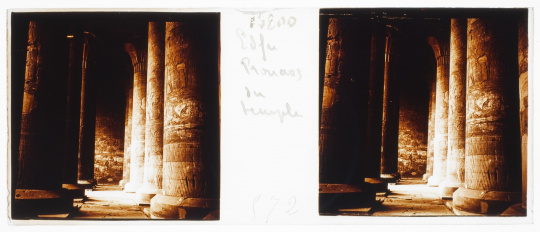 Edfu
Pronaos
du
temple
572